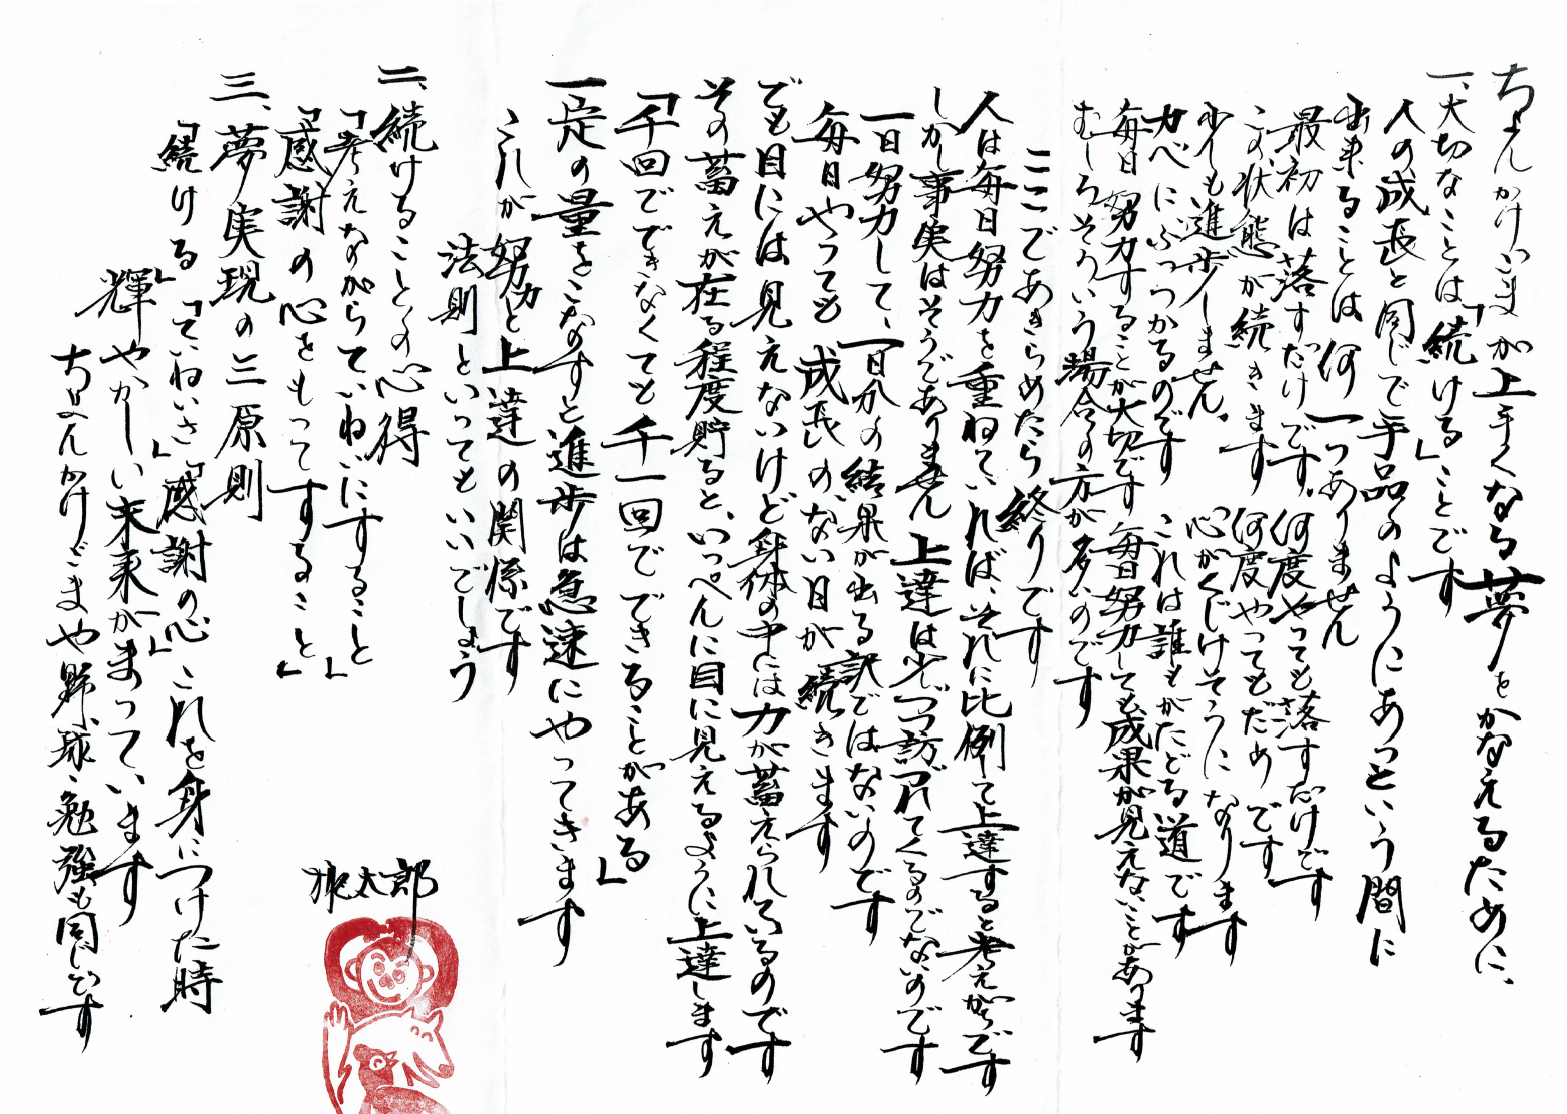 ちょんかけごまが上手くなる夢をかなえるために、
一、大切なことは「続ける」ことです
人の成長と同じで手品のようにあっという間に
出来ることは何一つありません
最初は落すだけです。何度やっても落すだけです
この状態が続きます 何度やってもだめです
少しも進歩しません。心がくじけそうになります
カベにぶつかるのです これは誰もがたどる道です
毎日努力することが大切です 毎日努力しても成果が見えないことがあります
むしろそういう場合の方が多いのです
ここであきらめたら終りです
人は毎日努力を重ねていれば、それに比例して上達すると考えがちです
しかし事実はそうでありません 上達は少しづつ訪づれてくるのでないのです
一日努力して、一日分の結果が出る訳ではないのです
毎日やっても成長のない日が続きます
でも目には見えないけど身体の中には力が蓄えられているのです
その蓄えが在る程度貯ると、いっぺんに目に見えるように上達します
「千回でできなくても千一回でできることがある」
一定の量をこなすと進歩は急速にやってきます
これが努力と上達の関係です
法則といってもいいでしょう
二、続けることの心得
「考えながらていねいにすること」
「感謝の心をもってすること」
三、夢実現の三原則
「続ける」「ていねいさ」「感謝の心」これを身につけた時
輝やかしい未来がまっています
ちょんかけごまや野球、勉強も同じです
旅太郎